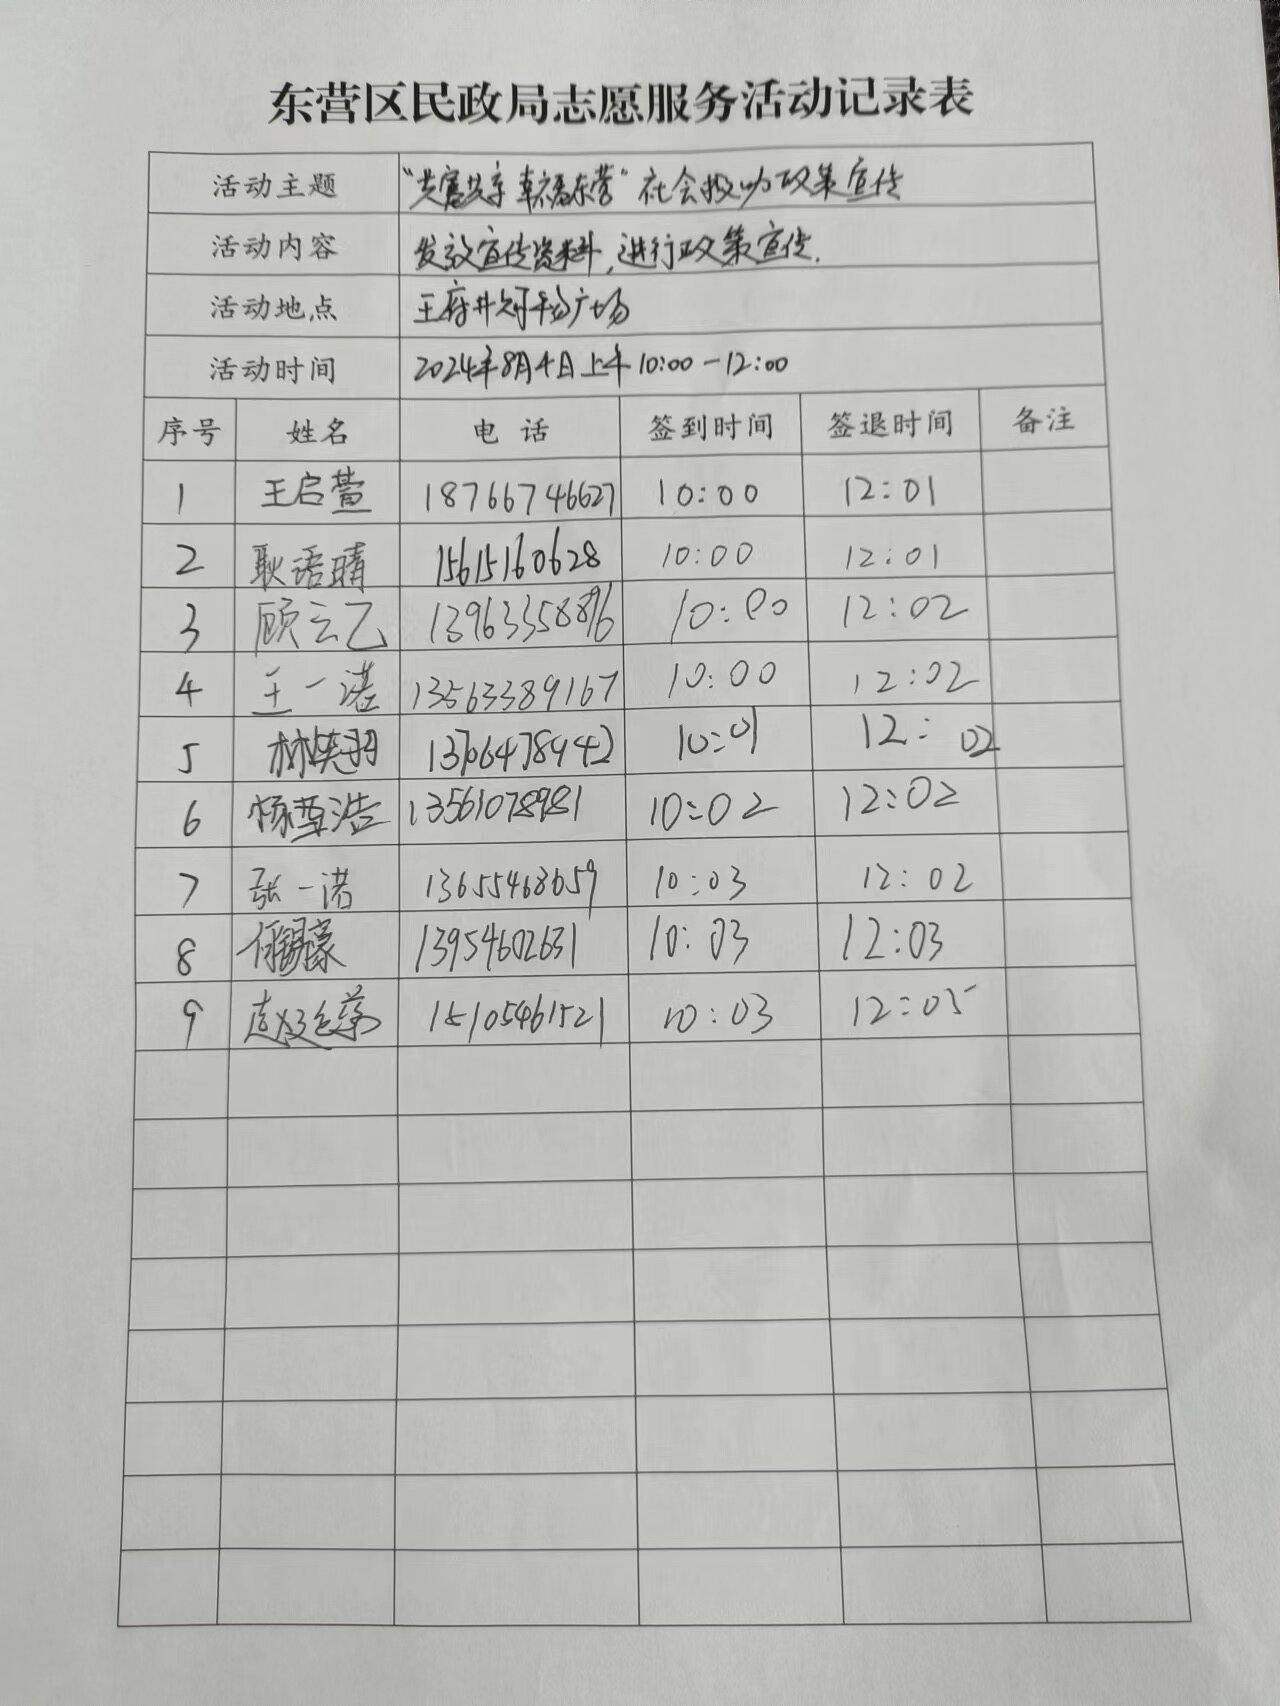 东营区民政局志愿服务活动记录表
活动主题 “共富共享 幸福东营” 社会救助政策宣传
活动内容 发放宣传资料,进行政策宣传.
活动地点 王府井广场
活动时间 2024年8月4日上午10:00-12:00
序号 姓名 电话 签到时间 签退时间 备注
1 王启萱 18766746627 10:00 12:01
2 耿语晴 15615160628 10:00 12:01
3 顾云乙 10:00 12:02
4 王一诺 13563389167 10:00 12:02
5 13706478942 10:01 12:02
6 浩 13561078981 10:02 12:02
7 张一诺 13655468659 10:03 12:02
8 13954602631 10:03 12:03
9 15105461521 10:03 12:05